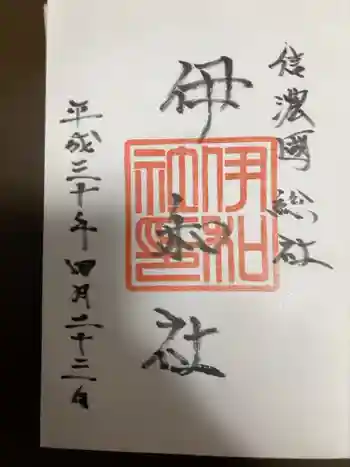 信濃國総社
伊和社
伊和
社印
平成三十年四月二十二日